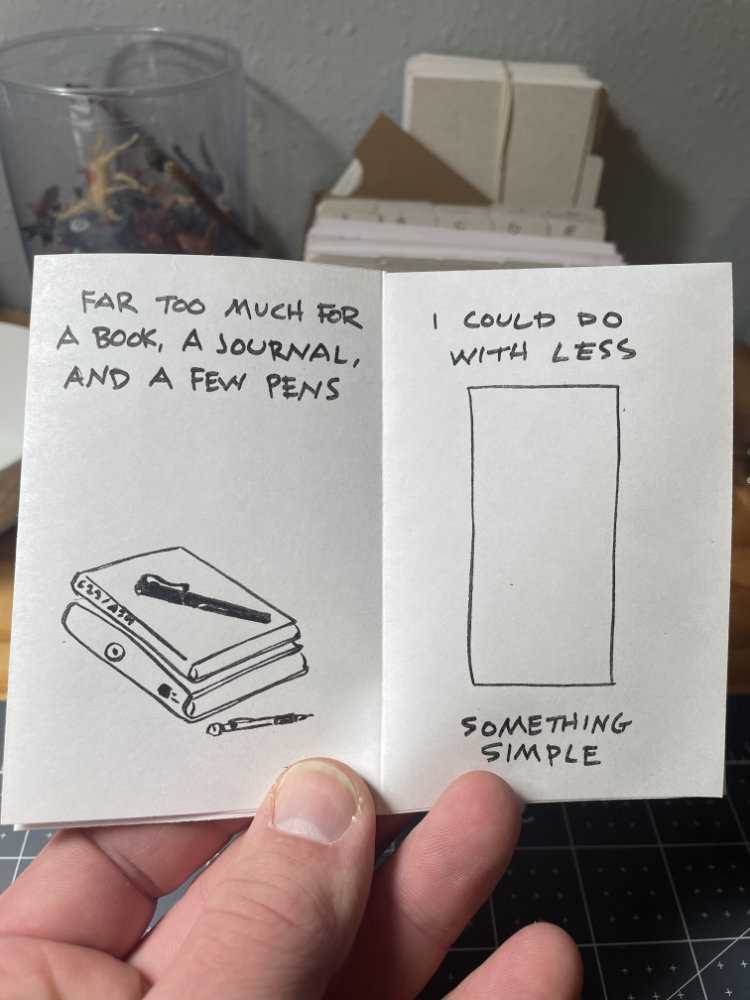 FAR TOO MUCH FOR
A BOOK, A JOURNAL,
AND A FEW PENS
I COULD DO
WITH LESS
SOMETHING
SIMPLE